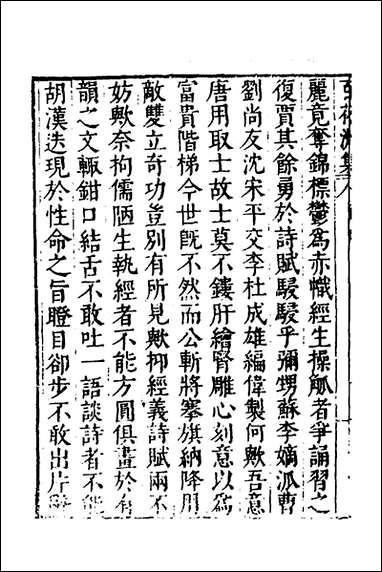 麗竟奪錦標鬱為赤幟經生操觚者爭誦習之
復賈其餘勇於詩賦駸駸乎彌甥蘇李嫡派曹
劉尚友沈宋平交李杜成雄編偉製何歟吾意
唐用取士故士莫不鏤肝繪腎雕心刻意以為
富貴階梯今世旣不然而公斬將搴旗納降用
敵雙立奇功豈別有所見歟抑經義詩賦兩不
妨歟奈拘儒陋生執經者不能方圓俱畫於有
韻之文輙鉗口結舌不敢吐一語談詩者不能
胡漢迭現於性命之旨瞪目卻步不敢出片